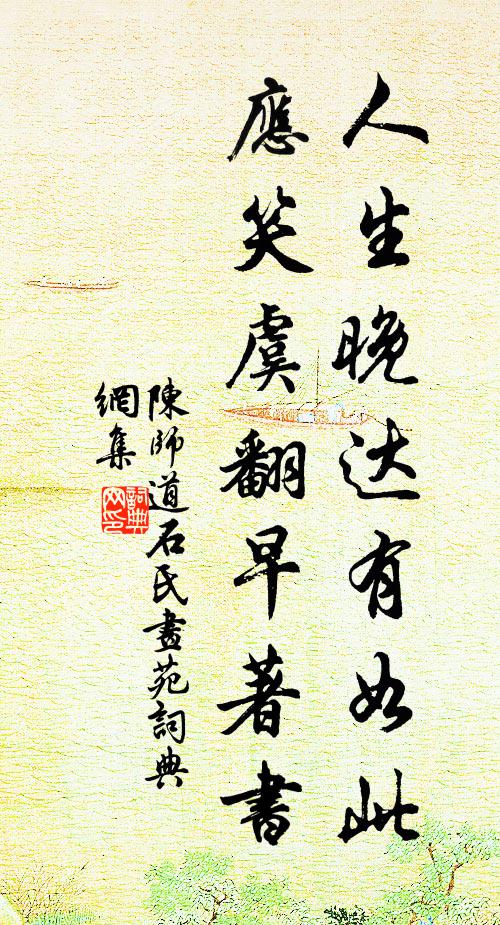 人生晚达有如此
應笑虞翻早著書
陳師道石氏畫苑詞典
網集
詞典
网印